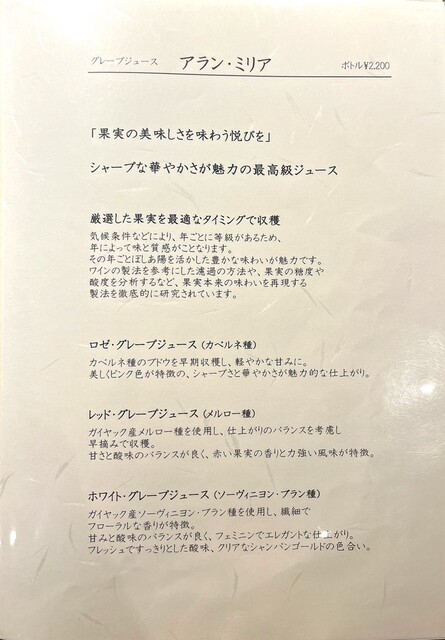 グレープジュース アラン・ミリア ボトル¥2,200
「果実の美味しさを味わう悦びを」
シャープな華やかさが魅力の最高級ジュース
厳選した果実を最適なタイミングで収穫
気候条件などにより、年ごとに等級があるため、
年によって味と質感がことなります。
その年ごとぼしあ陽を活かした豊かな味わいが魅力です。
ワインの製法を参考にした濾過の方法や、果実の糖度や
酸度を分析するなど、果実本来の味わいを再現する
製法を徹底的に研究されています。
ロゼ・グレープジュース (カベルネ種)
カベルネ種のブドウを早期収穫し、軽やかな甘みに。
美しくピンク色が特徴の、シャープさと華やかさが魅力的な仕上がり。
レッド・グレープジュース (メルロー種)
ガイヤック産メルロー種を使用し、仕上がりのバランスを考慮し
早摘みで収穫。
甘さと酸味のバランスが良く、赤い果実の香りと力強い風味が特徴。
ホワイト・グレープジュース (ソーヴィニヨン・ブラン種)
ガイヤック産ソーヴィニヨン・ブラン種を使用し、繊細で
フローラルな香りが特徴。
甘みと酸味のバランスが良く、フェミニンでエレガントな仕上がり。
フレッシュですっきりとした酸味、クリアなシャンパンゴールドの色合い。